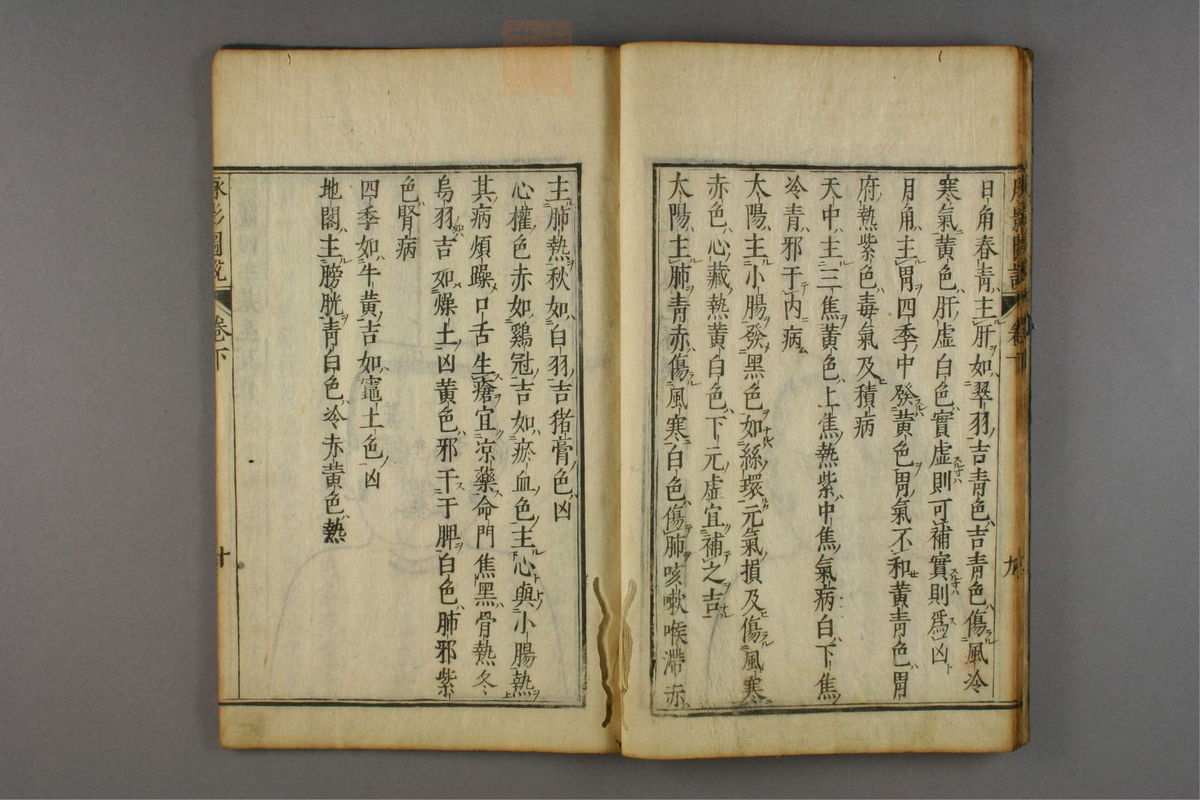 日角春青主肝如翠羽吉青色吉青色傷風冷
寒氣黃色肝虛白色實虛則可補實則爲凶
月角主胃四季中發黃色胃氣不和黃青色胃
府熱紫色毒氣及積病
天中主三焦黃色上焦熱紫中焦氣病白下焦
冷青邪于內病
太陽主小腸發黑色如絲環元氣損及傷風寒
赤色心藏熱黃白色下元虛宜補之吉
太陽主肺青赤傷風寒白色傷肺咳嗽喉滯赤
卷下
九
主肺熱秋如白羽吉猪膏色凶
心權色赤如鷄冠吉如瘀血色主心與小腸熱
其病煩躁口舌生瘡宜凉藥命門焦黑骨熱冬
烏羽吉如燥土凶黃色邪干于脾白色肺邪紫
色腎病
四季如牛黃吉如竈土色凶
地閣主膀胱青白色冷赤黃色熱
圖說
卷下
十